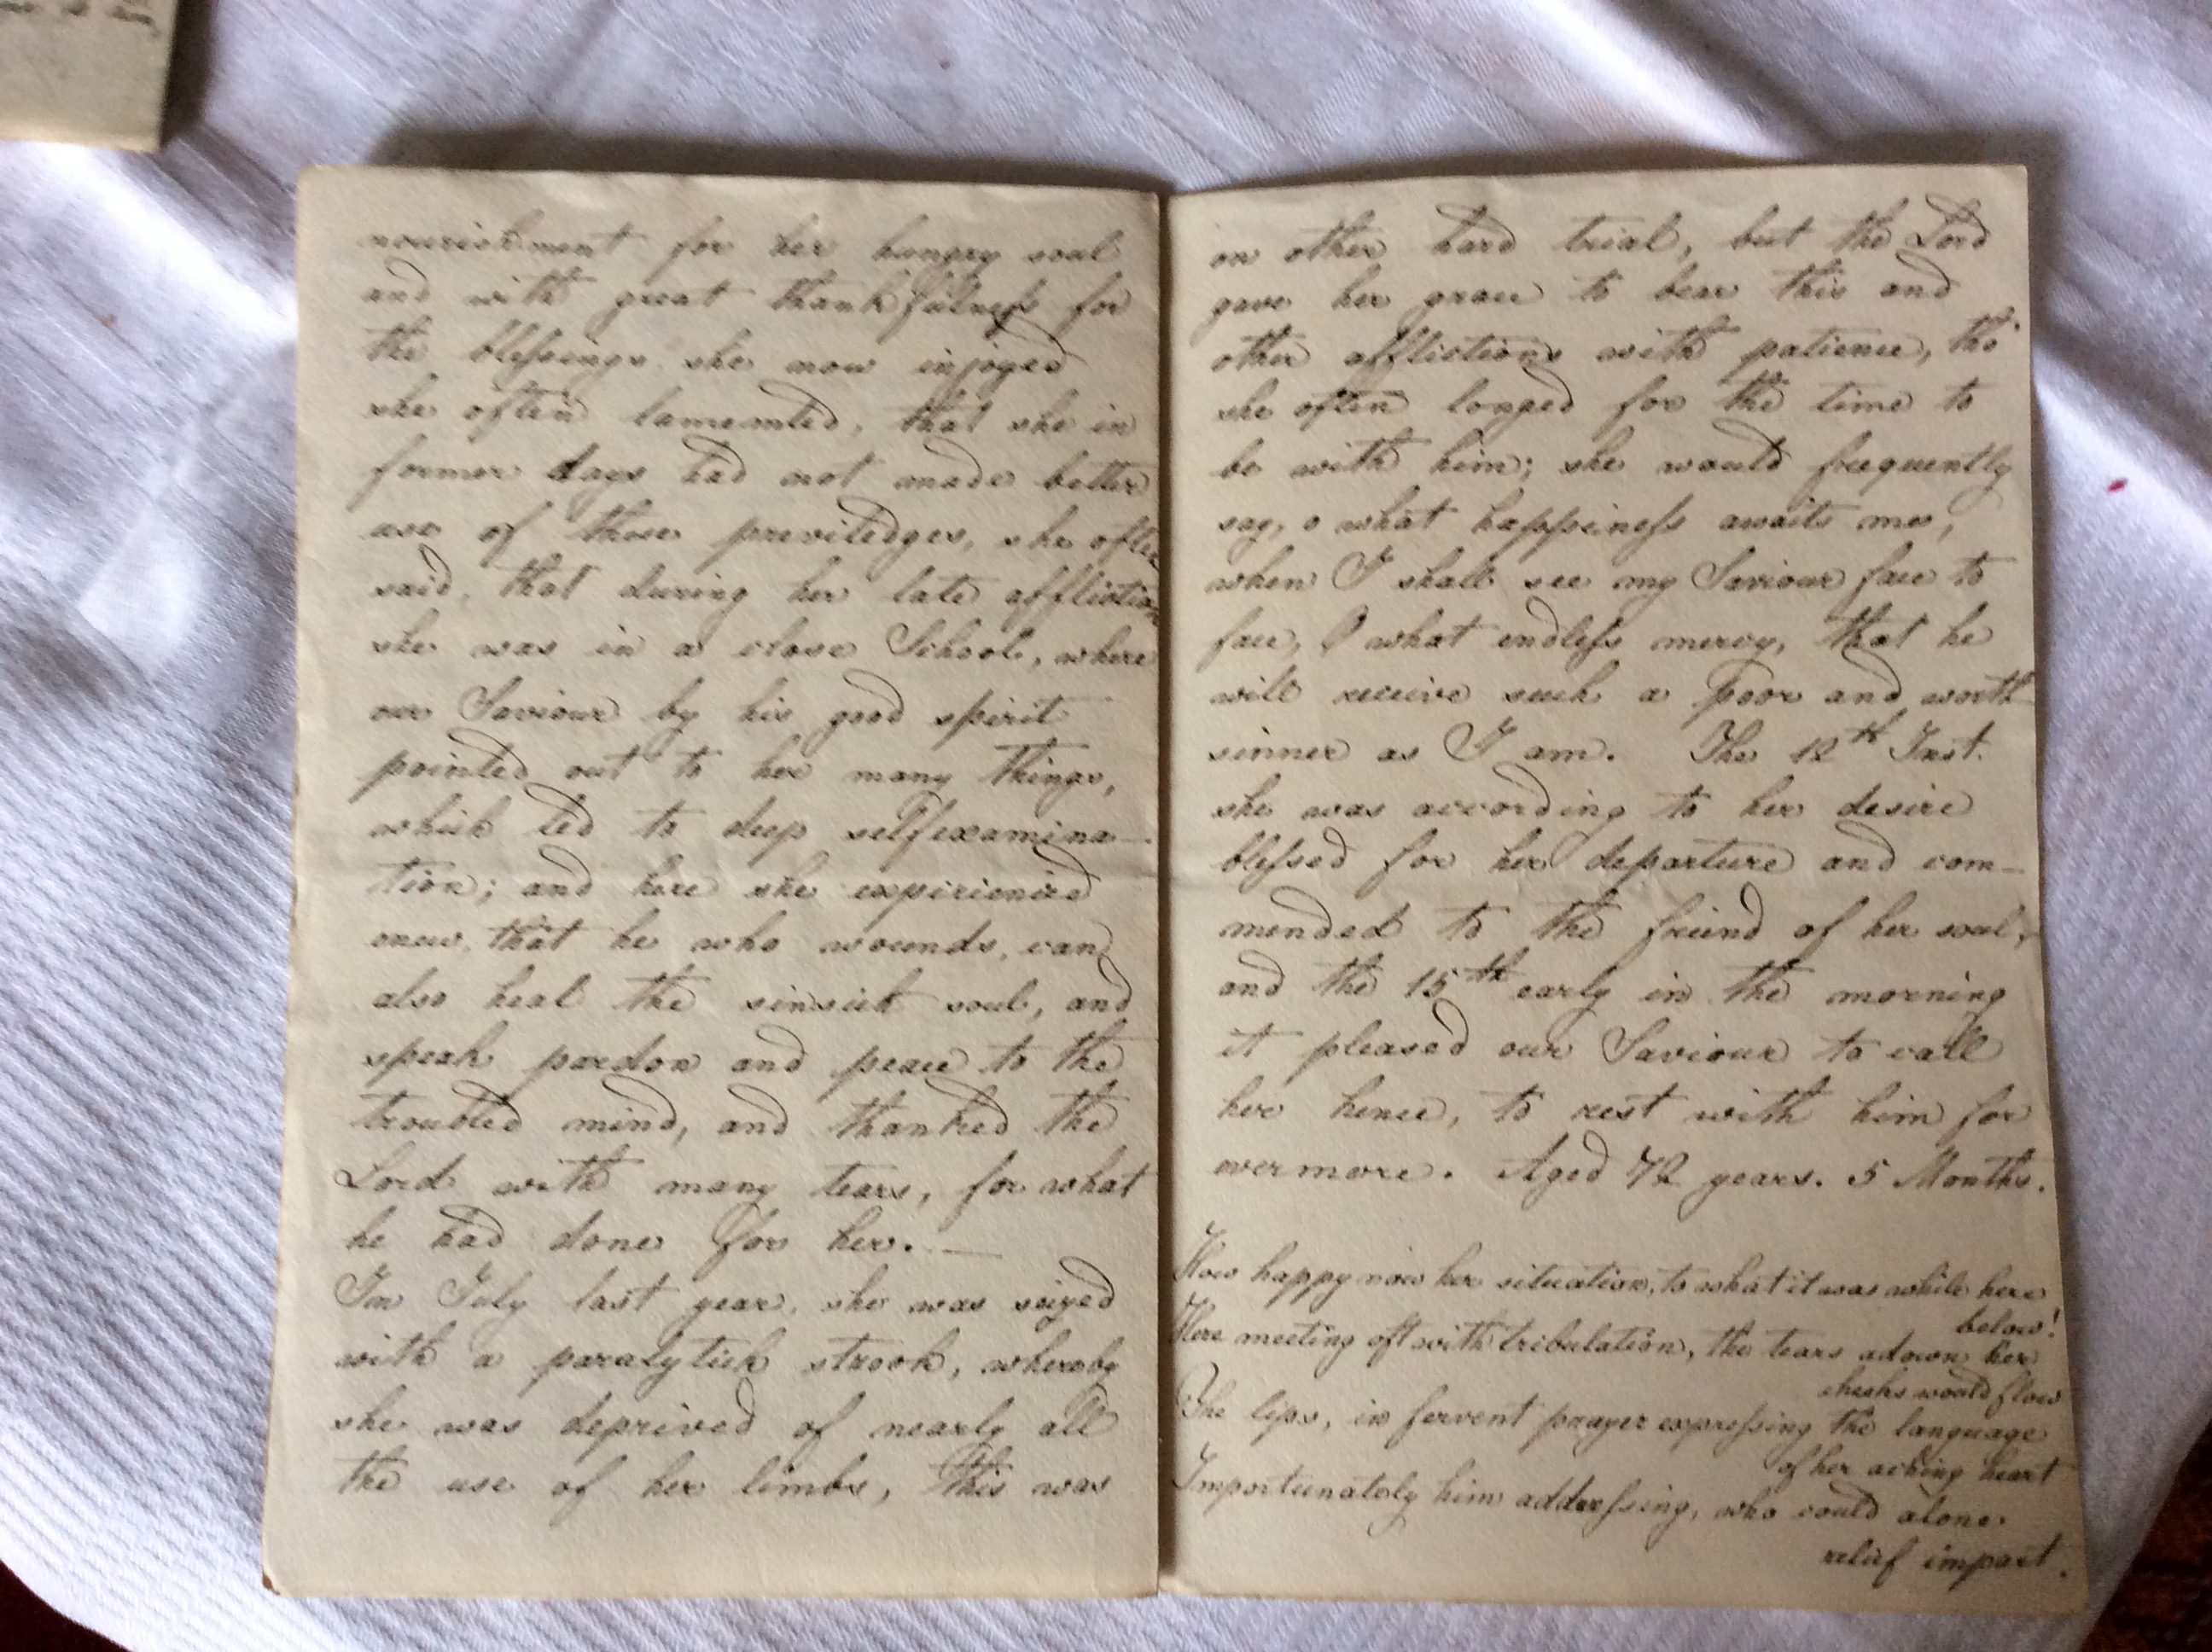 nourishment for her hungry soul
and with great thankfulness for
the blessings she now injoyed
she often lamented, that she in
former days had not made better
use of those previledges, she often
said, that during her late affliction
she was in a close School, where
our Saviour by his good spirit
pointed out to her many things,
which led to deep selfexamina-
tion; and here she expirienced
anew, that he who wounds, can
also heal the sinsick soul, and
speak pardon and peace to the
troubled mind, and thanked the
Lord with many tears, for what
he had done for her. —
In July last year, she was seized
with a paralytick strook, whereby
she was deprived of nearly all
the use of her limbs, This was
on other hard trial, but the Lord
gave her grace to bear this and
other afflictions with patience, tho'
she often longed for the time to
be with him; she would frequently
say, o what happiness awaits me,
when I shall see my Saviour face to
face, O what endless mercy, that he
will receive such a poor and worth
sinner as I am. The 12th Inst.
she was according to her desire
blessed for her departure and com-
mended to the friend of her soul,
and the 15th early in the morning
it pleased our Saviour to call
her hence, to rest with him for
evermore. Aged 72 years. 5 Months.
How happy now her situation, to what it was while here
below!
Here meeting oft with tribulation, the tears adown her
cheeks would flow
The lips, in fervent prayer expressing the language
of her aching heart
Importunately him addressing, who could alone
relief impart.